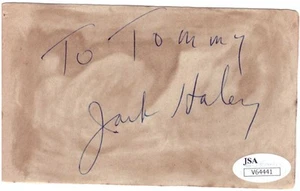 To Tommy
Jack Haley
JSA
V64441